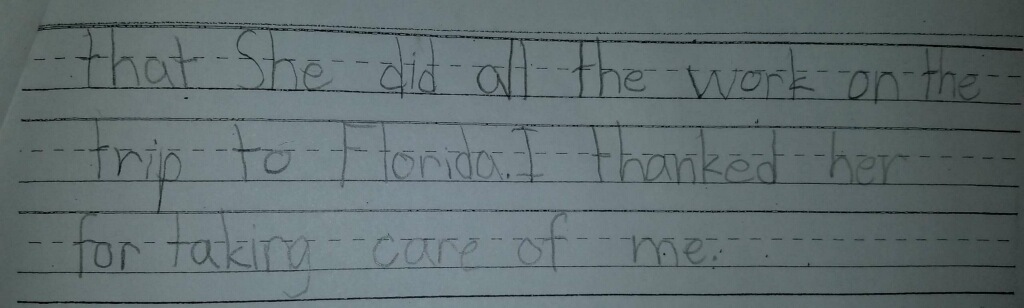 that She did all the work on the
trip to Florida. I thanked her
for taking care of me.